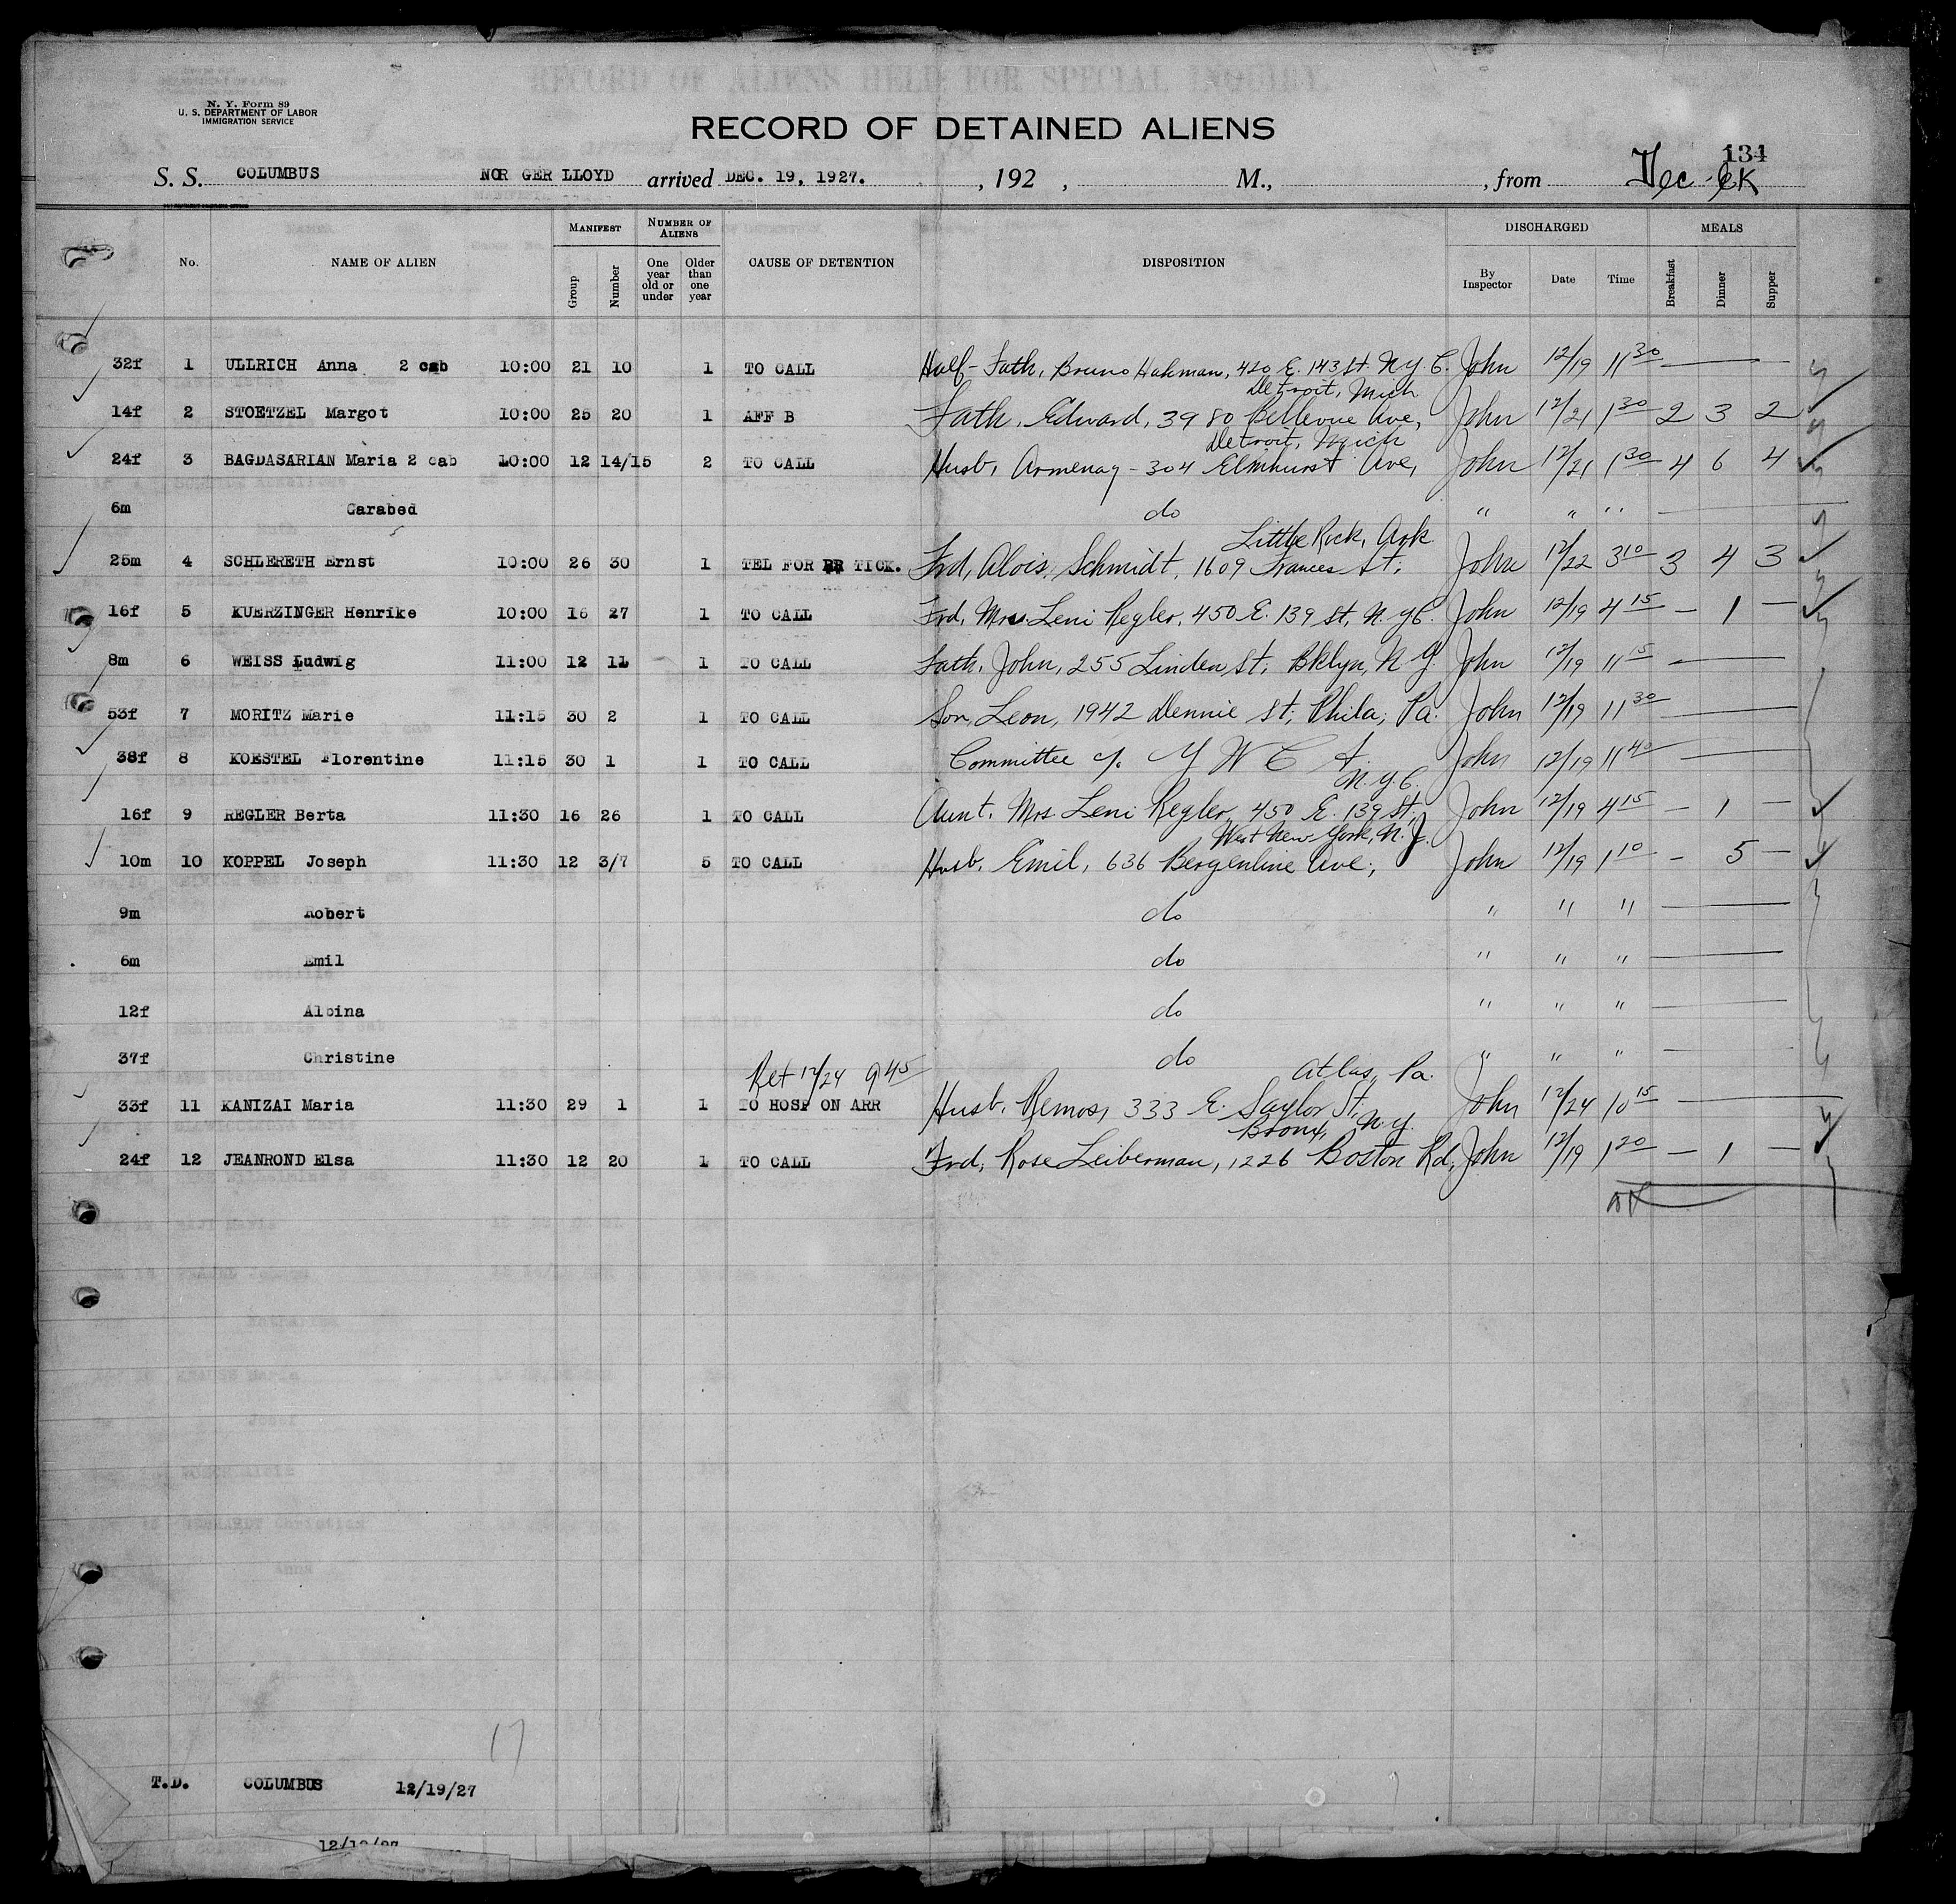 N. Y. Form 89
U. S. DEPARTMENT OF LABOR
IMMIGRATION SERVICE
RECORD OF ALIENS HELD FOR SPECIAL INQUIRY
RECORD OF DETAINED ALIENS
134
S. S. COLUMBUS NOR GER LLOYD arrived DEC. 19, 1927. , 192 , M., , from Dec
No. NAME OF ALIEN MANIFEST Group Number NUMBER OF ALIENS One year old or under Older than one year CAUSE OF DETENTION DISPOSITION DISCHARGED By Inspector Date Time MEALS Breakfast Dinner Supper
32f 1 ULLRICH Anna 2 cab 10:00 21 10 1 TO CALL Half-Fath, Bruno Hahman, 420 E. 143 St. N.Y.C. John 12/19 11 30 —
Detroit, Mich
14f 2 STOETZEL Margot 10:00 25 20 1 AFF B Fath, Edward, 3980 Bellevue Ave, John 12/21 1 30 2 3 2
Detroit, Mich
24f 3 BAGDASARIAN Maria 2 cab 10:00 12 14/15 2 TO CALL Husb, Armenag - 304 Elmhurst Ave, John 12/21 1 30 4 6 4
6m Garabed do " " " —
Little Rick, Ark
25m 4 SCHLERETH Ernst 10:00 26 30 1 TEL FOR RR TICK. Frd, Alois Schmidt, 1609 Frances St; John 12/22 3 10 3 4 3
16f 5 KUERZINGER Henrike 10:00 16 27 1 TO CALL Frd, Mrs. Leni Regler, 450 E. 139 St, N.Y.C. John 12/19 4 15 — 1 —
8m 6 WEISS Ludwig 11:00 12 11 1 TO CALL Fath, John, 255 Linden St; Bklyn, N.Y. John 12/19 11 15 —
53f 7 MORITZ Marie 11:15 30 2 1 TO CALL Son, Leon, 1942 Dennie St; Phila; Pa. John 12/19 11 30 —
38f 8 KOESTEL Florentine 11:15 30 1 1 TO CALL Committee of Y W C A. John 12/19 11 40 —
N.Y.C.
16f 9 REGLER Berta 11:30 16 26 1 TO CALL Aunt. Mrs Leni Regler, 450 E. 139 St, John 12/19 4 15 — 1 —
West New York, N.J.
10m 10 KOPPEL Joseph 11:30 12 3/7 5 TO CALL Husb. Emil, 636 Bergenline Ave, John 12/19 1 10 — 5 —
9m Robert do " " " —
6m Emil do " " " —
12f Albina do " " " —
37f Christine do " " " —
Ret 12/24 9 45 Atlas, Pa.
33f 11 KANIZAI Maria 11:30 29 1 1 TO HOSP ON ARR Husb. Remos, 333 E. Saylor St, John 12/24 10 15 —
Bronx, N.Y.
24f 12 JEANROND Elsa 11:30 12 20 1 TO CALL Frd, Rose Leiberman, 1226 Boston Rd, John 12/19 1 20 — 1 —
17
T.D. COLUMBUS 12/19/27